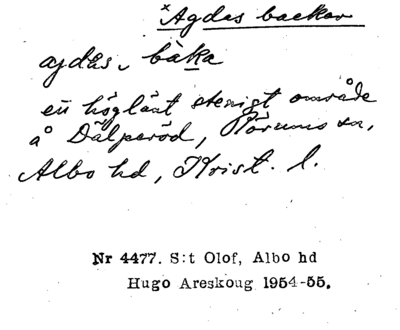 ×Agdas backar
agdas, baka
en höglänt stenigt område
å Dälperöd, Rörums sn,
Albo hd, Krist. l.
Nr 4477. S:t Olof, Albo hd
Hugo Areskoug 1954-55.